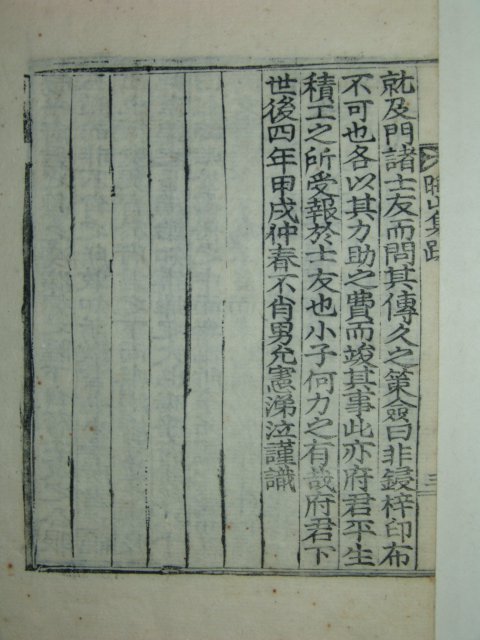 山集跋
三
就及門諸士友而問其傳久之策僉曰非鋟梓印布
不可也各以其力助之費而竣其事此亦府君平生
積工之所受報於士友也小子何力之有哉府君下
世後四年甲戌仲春不肖男允憲涕泣謹識